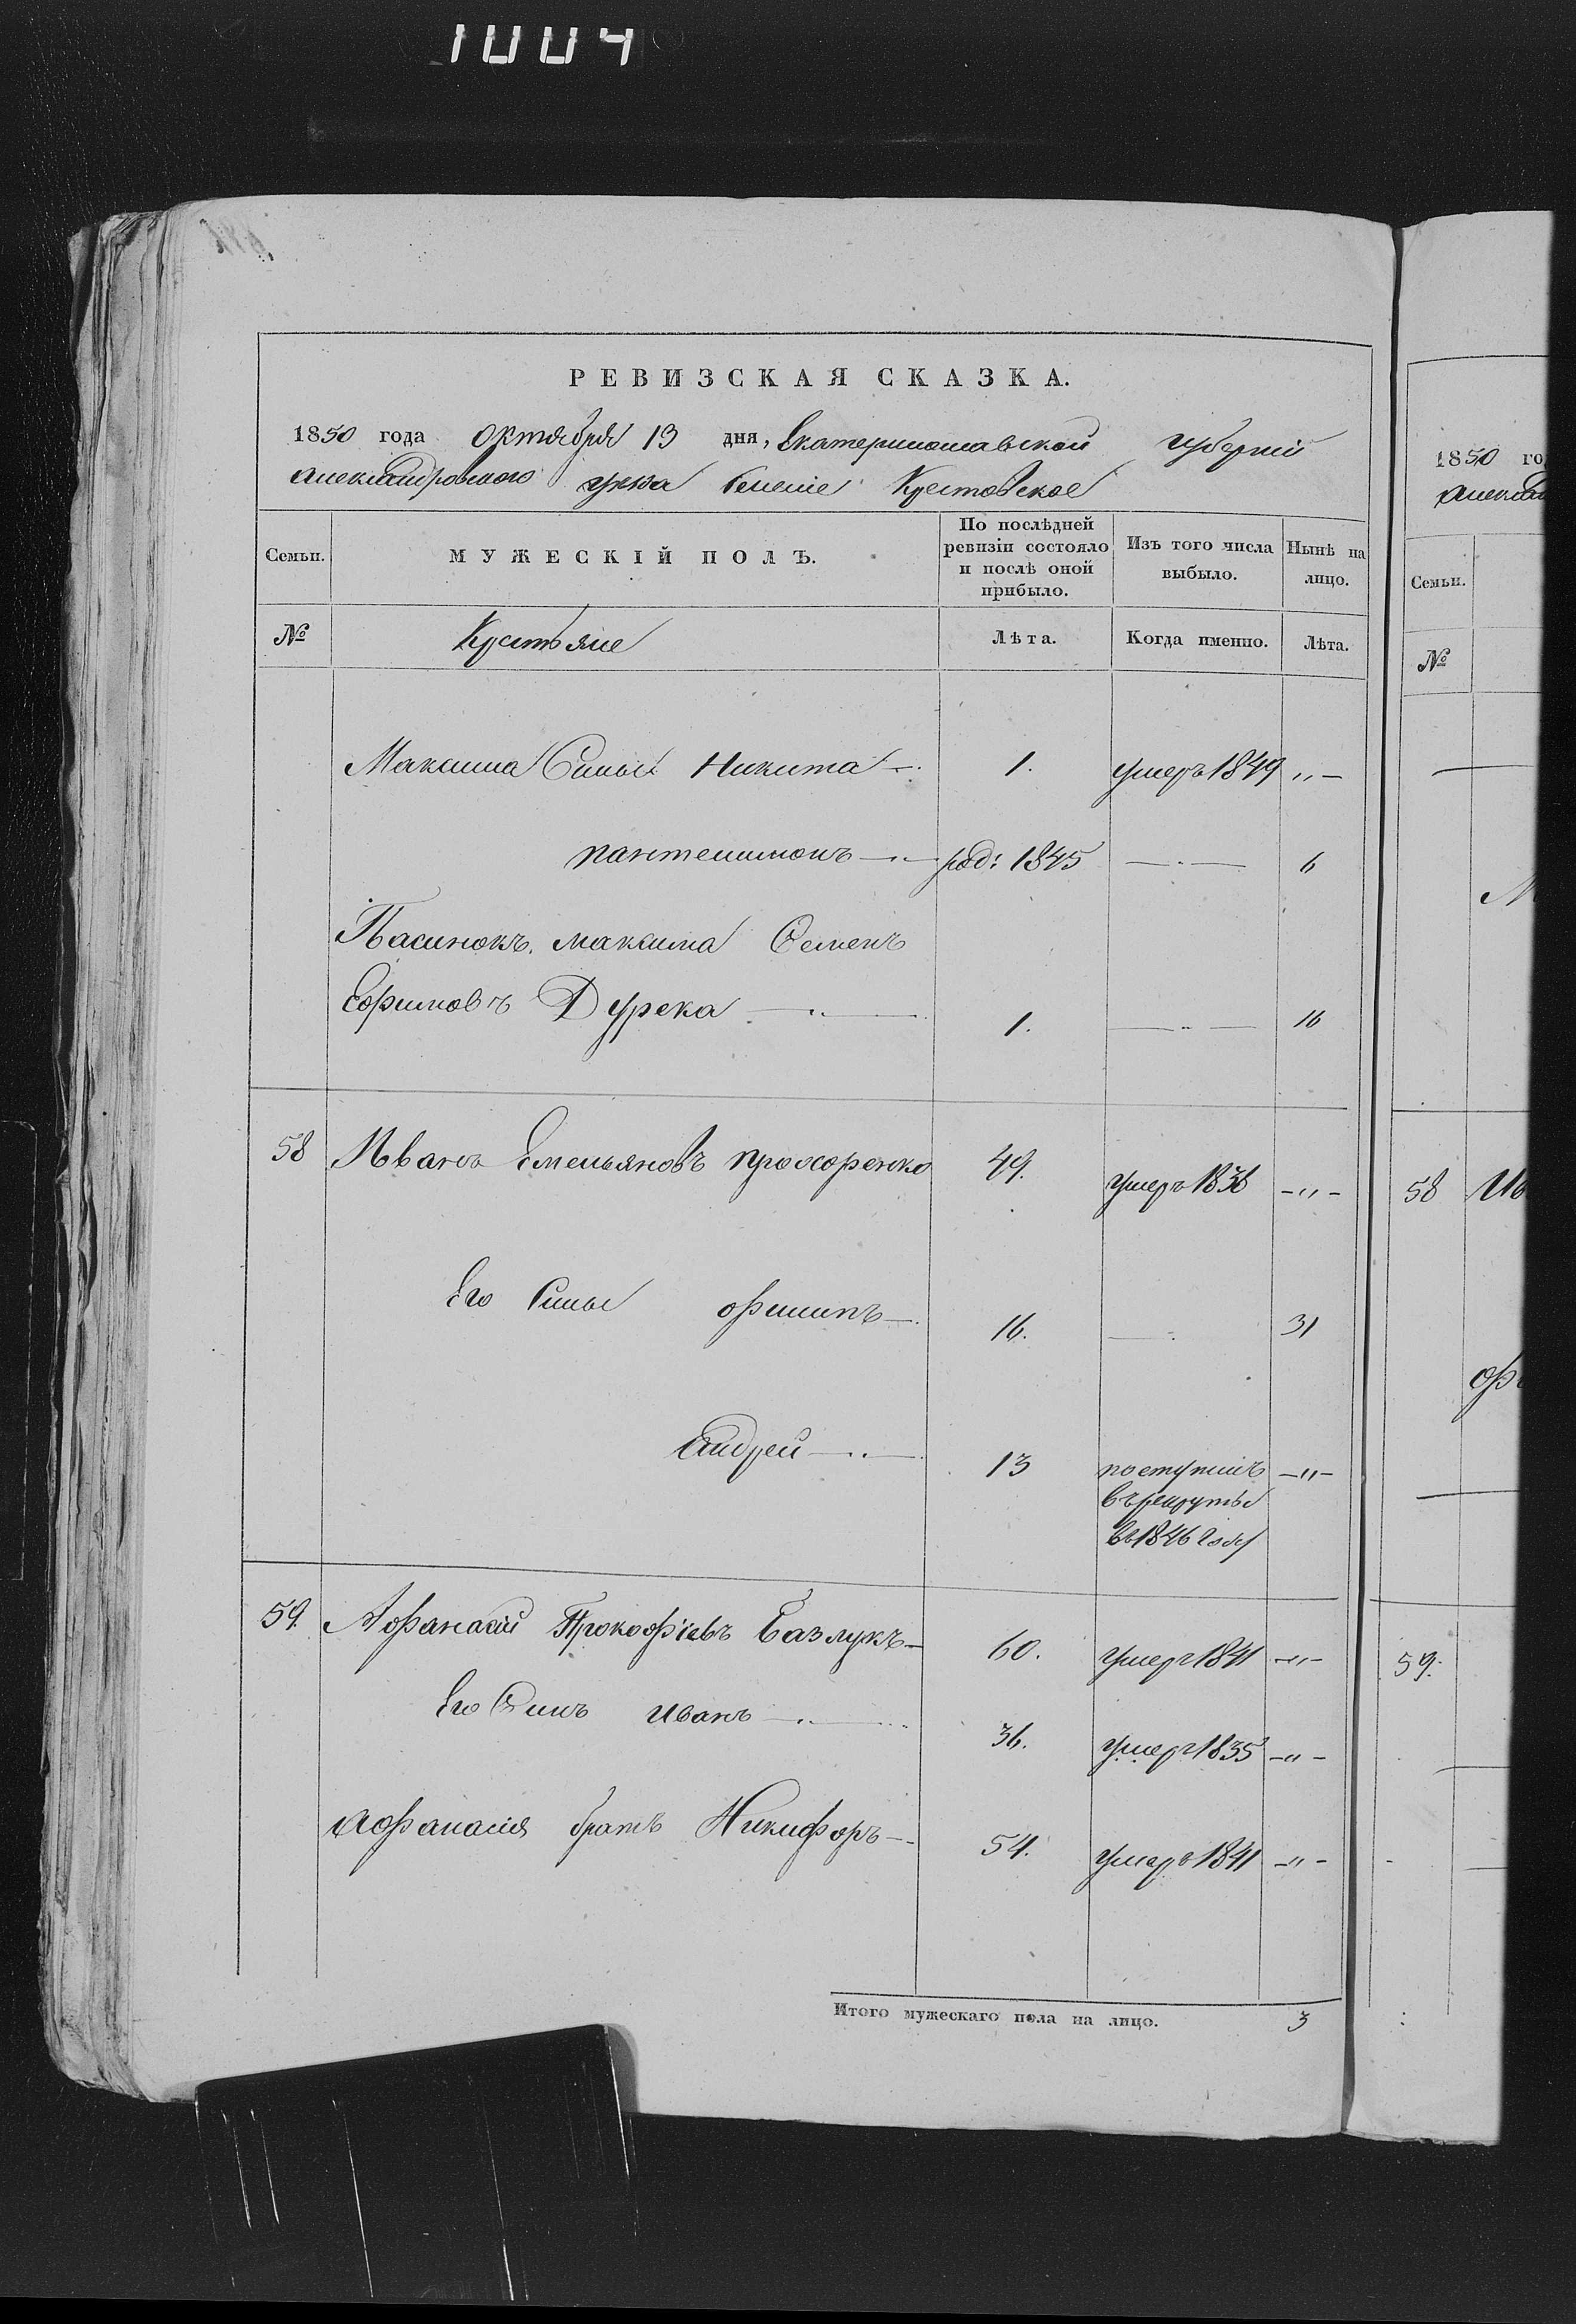 1004
РЕВИЗСКАЯ СКАЗКА.
1850 года Октября 13 дня, Екатеринославской губерніи
Александровского уезда Селеніе Крестовское
Семьи. МУЖЕСКІЙ ПОЛЪ. По послѣдней ревизіи состояло и послѣ оной прибыло. Изъ того числа выбыло. Нынѣ на лицо.
№ Крестьяне Лѣта. Когда именно. Лѣта.
Максима Сыны Никита 1. умеръ 1849 „
пантелимонъ род: 1845 — 6
Пасинокъ максима Семенъ
Ефимовъ Дурека 1. — 16
58 Иванъ Емельяновъ прохоренко 49. умеръ 1836 „
Его Сыны филипъ 16. — 31
Андрей 13 поступилъ „
въ рекруты
въ 1846 году
59. Афанасій Прокофіевъ Базлукъ 60. умеръ 1841 „
Его Сынъ иванъ 36. умеръ 1835 „
Афанасія братъ Никифоръ 54. умеръ 1841 „
Итого мужескаго пола на лицо. 3
1850 го
Алексан
Семьи.
№
М
58 Ив
фи
59.